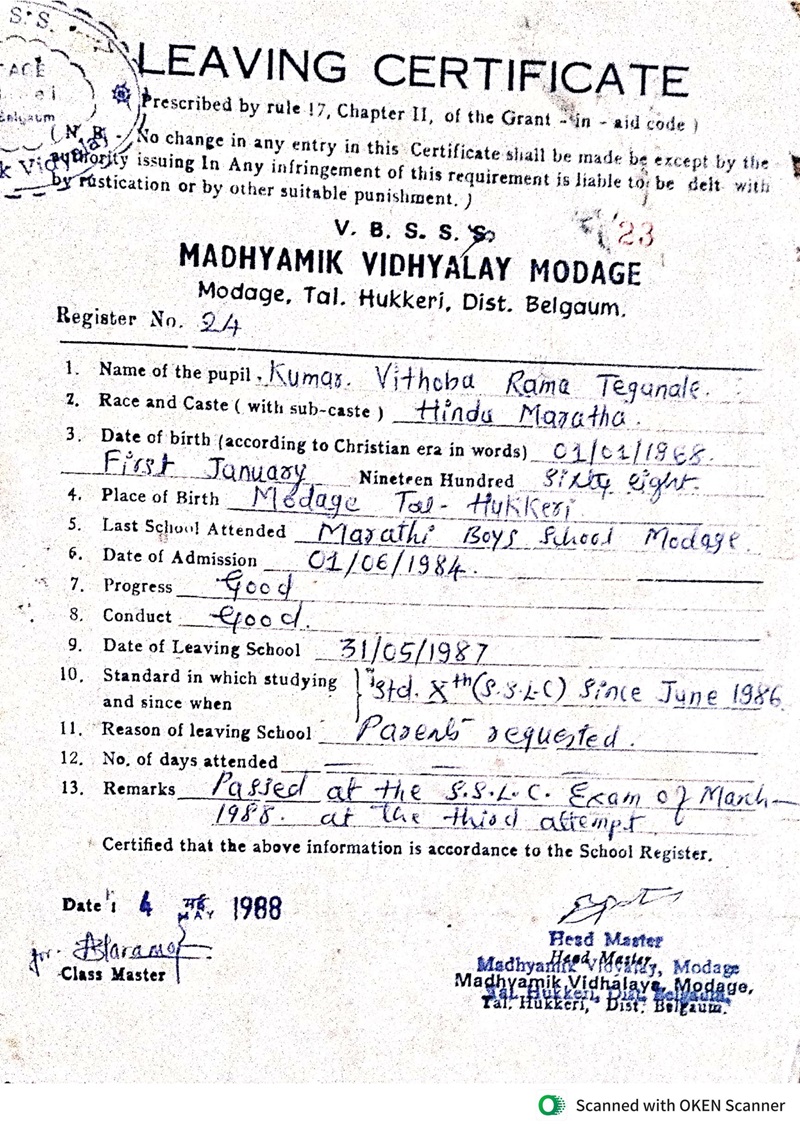 S. S.
AGE
Belgaum
LEAVING CERTIFICATE
Prescribed by rule 17, Chapter II, of the Grant - in - aid code )
( N. B. - No change in any entry in this Certificate shall be made be except by the
authority issuing In Any infringement of this requirement is liable to be delt with
by rustication or by other suitable punishment. )
V. B. S. S. S.
23
MADHYAMIK VIDHYALAY MODAGE
Modage, Tal. Hukkeri, Dist. Belgaum.
Register No. 24
1. Name of the pupil. Kumar. Vithoba Rama Tegunale.
2. Race and Caste ( with sub-caste ) Hindu Maratha.
3. Date of birth (according to Christian era in words) 01/01/1968.
First January Nineteen Hundred Sixty eight.
4. Place of Birth Modage Tal- Hukkeri
5. Last School Attended Marathi Boys School Modage.
6. Date of Admission 01/06/1984.
7. Progress Good
8. Conduct Good.
9. Date of Leaving School 31/05/1987
10. Standard in which studying and since when } Std. Xth (S.S.L.C) Since June 1986.
11. Reason of leaving School Parents requested.
12. No. of days attended — —
13. Remarks Passed at the S.S.L.C. Exam of March-
1988. at the third attempt
Certified that the above information is accordance to the School Register.
Date : 4 मई MAY 1988
for.
Class Master
Head Master
Head Master,
Madhyamik Vidyalay, Modage
Madhyamik Vidhalaya, Modage,
Tal. Hukkeri, Dist. Belgaum.
Tal. Hukkeri, Dist. Belgaum.
Scanned with OKEN Scanner